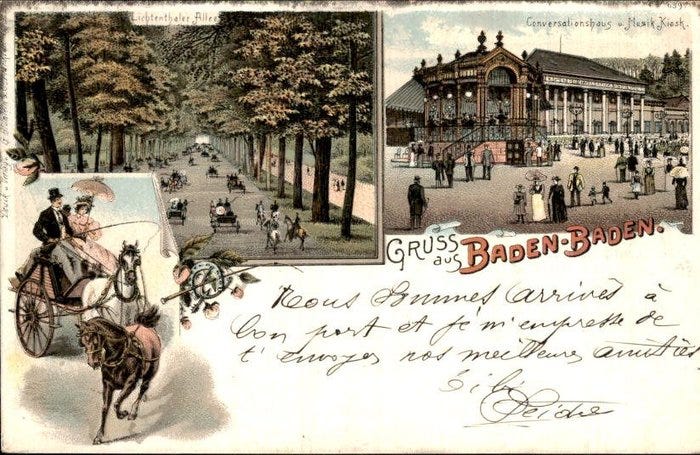 Lichtenthaler Allee
Conversationshaus u. Musik Kiosk.
GRUSS
aus BADEN-BADEN.
Nous sommes arrivés à
bon port et je m'empresse de
t'envoyer nos meilleures amitiés